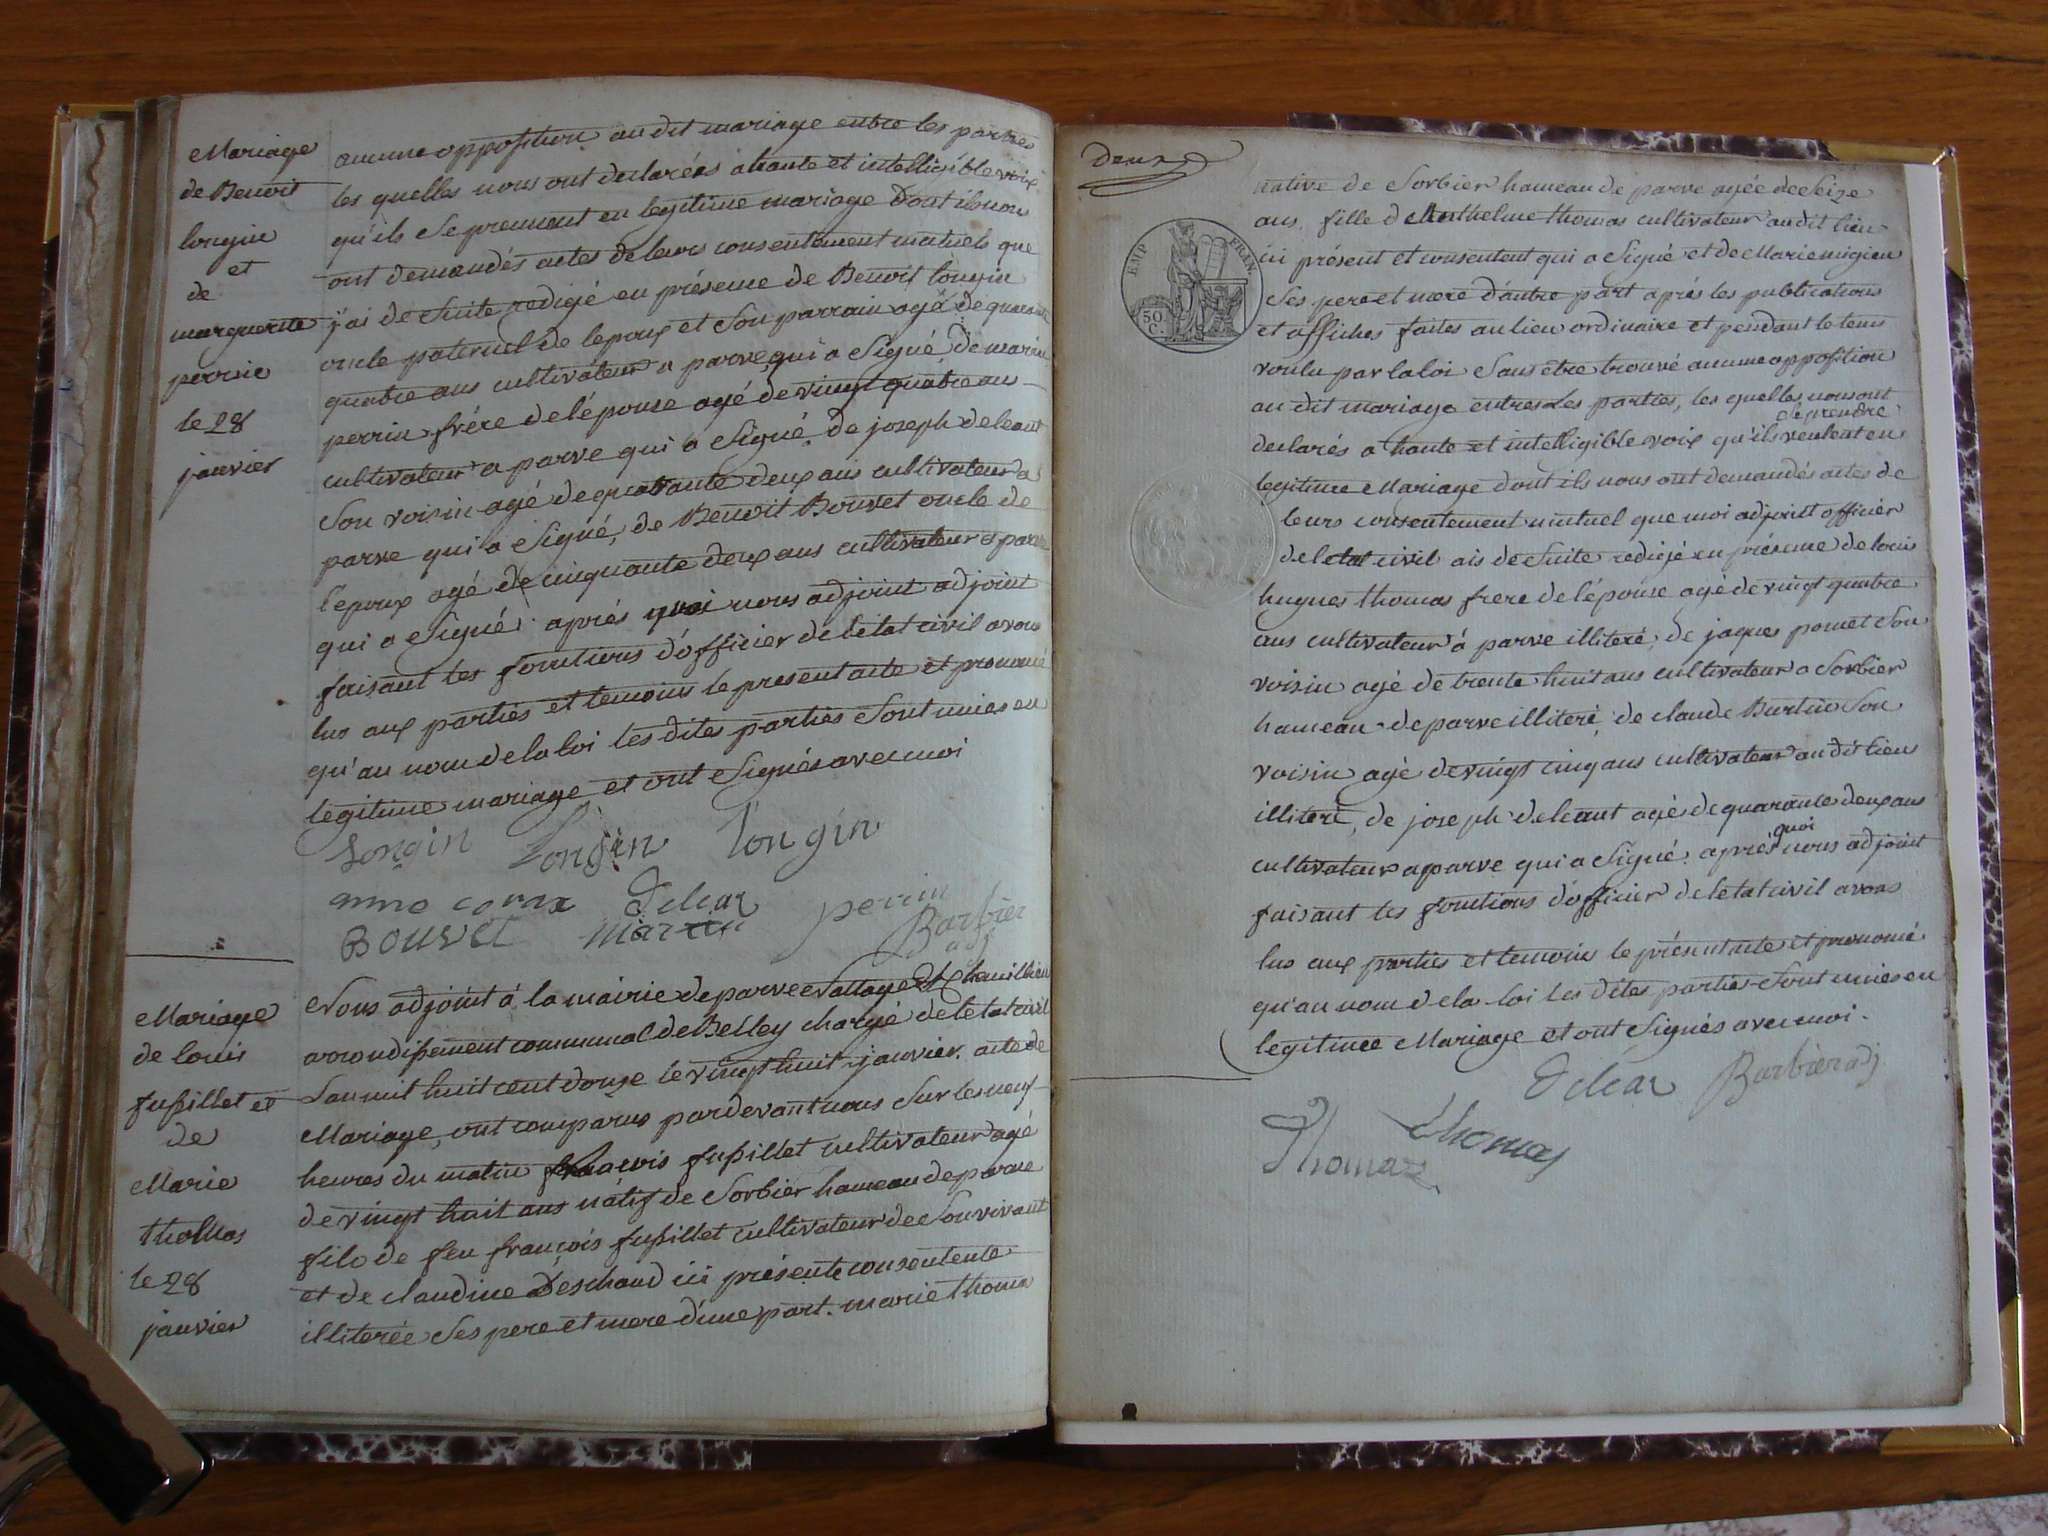 Mariage
de Benoit
longin
et
de
marguerite
perrin
le 28
janvier
aucune opposition au dit mariage entre les parties
les quelles nous ont declarées a haute et intelligible voix
qu'ils se prennent en legitime mariage dont ils nous
ont demandés actes de leurs consentement mutuels que
j'ai de suite redigé en présence de Benoit longin
oncle paternel de lepoux et son parrain agé de quarante
quatre ans cultivateur a parve, qui a signé, de marin
perrin frére de l'épouse agé de vingt quatre ans
cultivateur a parve qui a signé, de joseph deleaut
son voisin agé de quarante deux ans cultivateur a
parve qui a signé, de Benoit Bouvet oncle de
l'epoux agé de cinquante deux ans cultivateur a parve
qui a signé. aprés quoi nous adjoint adjoint
faisant les fonctions d'officier de létat civil avons
lus aux parties et temoins le present acte et prononcé
qu'au nom de la loi les dites parties sont unies en
legitime mariage et ont signés avec moi
longin longin longin
anne corax deleat perrin
Bouvet marin Barbier
adj
Mariage
de louis
fusillet et
de
Marie
thomas
le 28
janvier
Nous adjoint à la mairie de parve
arrondissement communal de Belley chargé de létat civil
lan mil huit cent douze le vingt huit janvier. acte de
Mariage, ont comparus pardevant nous sur les neuf
heures du matin françois fusillet cultivateur agé
de vingt huit ans natif de Sorbier hameau de parve
fils de feu françois fusillet cultivateur de son vivant
et de claudine Deschaud ici présente consentente
illiterée ses pere et mere d'une part. marie thomas
deux
native de Sorbier hameau de parve agée de Seize
ans, fille d'Anthelme thomas cultivateur au dit lieu
ici présent et consentent qui a signé et de Marie migieu
ses pere et mere d'autre part aprés les publications
et affiches faites au lieu ordinaire et pendant le tems
voulu par la loi sans être trouvé aucune opposition
au dit mariage entres les parties, les quelles nous ont
declarés a haute et intelligible voix qu'ils veulent se prendre en
legitime Mariage dont ils nous ont demandés actes de
leurs consentement mutuel que moi adjoint officier
de létat civil ais de suite redigé en présence de louis
hugues thomas frere de l'épouse agé de vingt quatre
ans cultivateur à parve illiteré, de jaques pomet son
voisin agé de trente huit ans cultivateur a Sorbier
hameau de parve illiteré, de claude Burtin son
voisin agé de vingt cinq ans cultivateur au dit lieu
illiteré, de joseph deleaut agé de quarante deux ans
cultivateur a parve qui a signé. aprés quoi nous adjoint
faisant les fonctions d'officier de létat civil avons
lus aux parties et temoins le présent acte et prononcé
qu'au nom de la loi les dites parties sont unies en
legitime Mariage et ont signés avec moi.
deleat Barbier adj
Thomas thomas
EMP FRAN.
50
C.